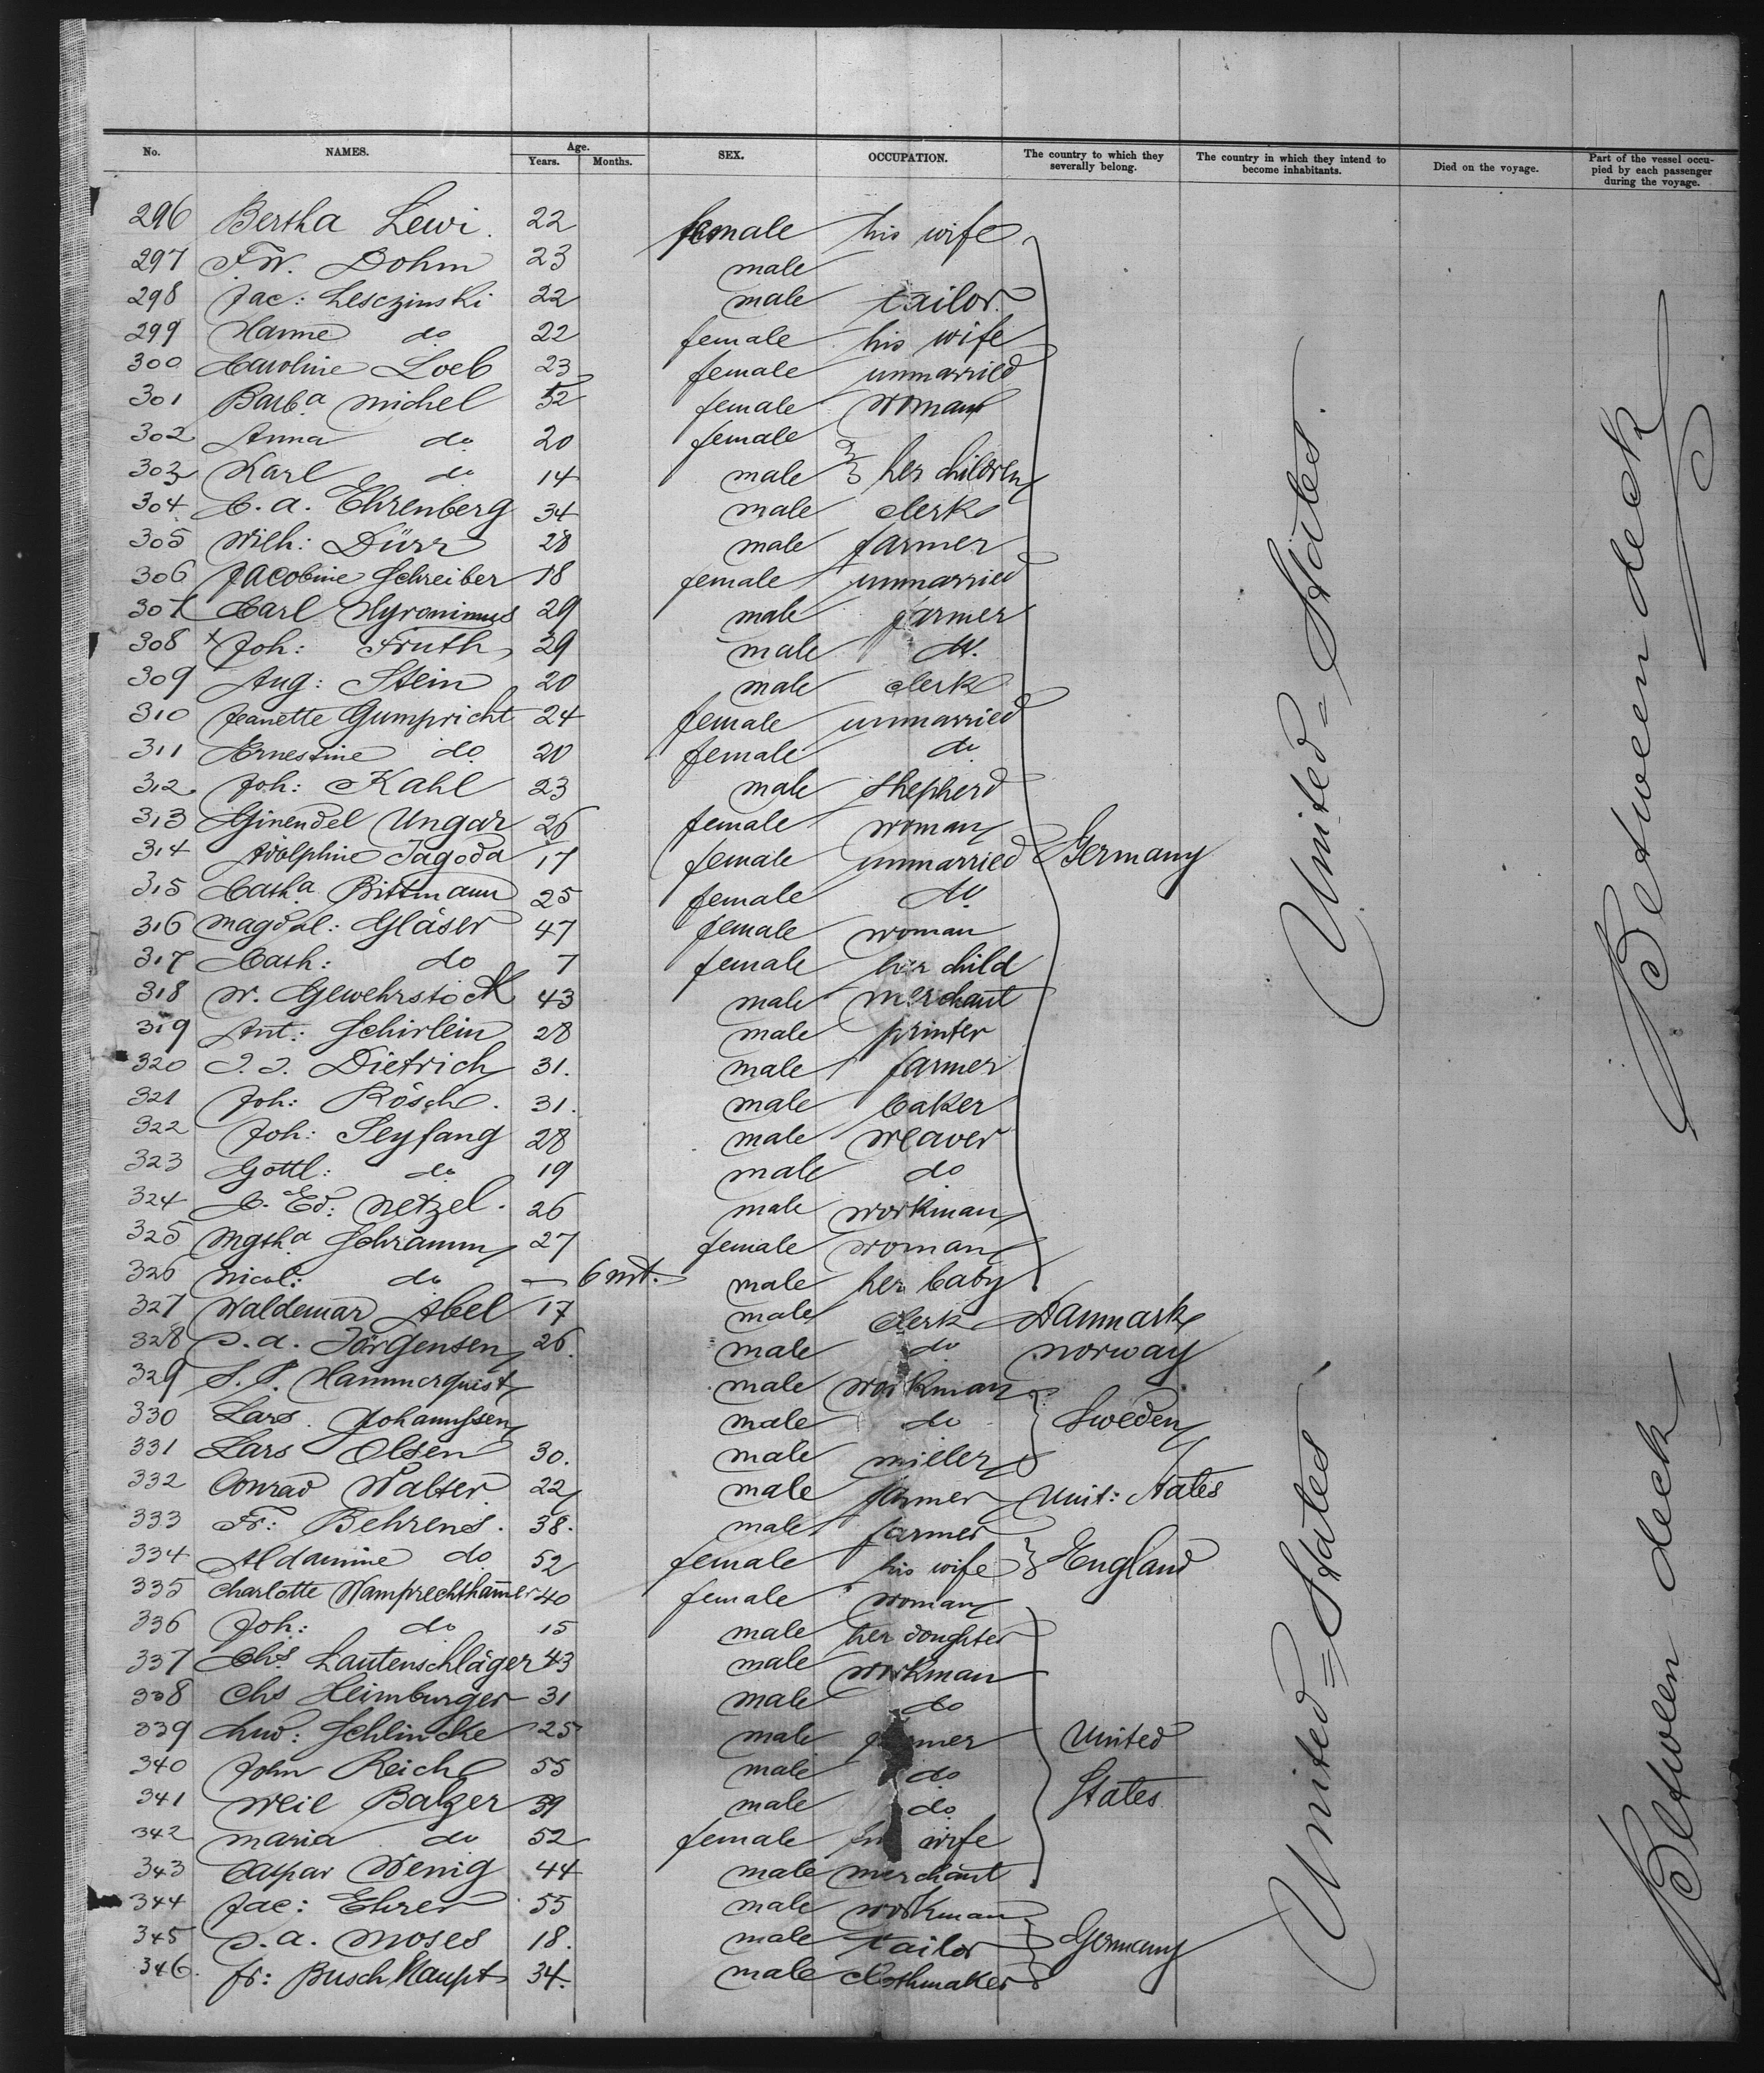 No. NAMES. Age. Years. Months. SEX. OCCUPATION. The country to which they severally belong. The country in which they intend to become inhabitants. Died on the voyage. Part of the vessel occupied by each passenger during the voyage.
296 Bertha Lewi. 22 female his wife
297 F.W. Dohm 23 male
298 Jac: Lesczinski 22 male tailor
299 Hanne do 22 female his wife
300 Caroline Loeb 23 female unmarried
301 Barba michel 52 female woman
302 Anna do 20 female
303 Karl do 14 male her children
304 C. a. Ehrenberg 34 male clerk
305 Wilh: Dürr 28 male farmer
306 Jacobine Schreiber 18 female unmarried
307 Carl Hyronimus 29 male farmer
308 x Joh: Fruth 29 male do.
309 Aug: Stein 20 male clerk
310 Jeanette Gumpricht 24 female unmarried
311 Ernestine do 20 female do
312 Joh: Kahl 23 male shepherd
313 Ginendel Ungar 26 female woman
314 Adolphine Jagoda 17 female unmarried Germany
315 Catha Bittmann 25 female do
316 Magdal: Gläser 47 female woman
317 Cath: do 7 female her child
318 W. Gewehrstock 43 male merchant
319 Ant: Schirlein 28 male printer
320 J. J. Dietrich 31. male farmer
321 Joh: Rösch. 31. male baker
322 Joh: Seyfang 28 male weaver
323 Gottl: do 19 male do
324 C. Ed: Netzel. 26 male workman
325 Mgtha Schramm 27 female woman
326 Nicol: do — 6 mt. male her baby
327 Waldemar Abel 17 male clerk Danmark
328 J. a. Jörgensen 26. male do Norway
329 S. P. Hammerquist male workman
330 Lars Johannssen male do Sweden
331 Lars Olsen 30. male miller
332 Conrad Walter 22 male farmer Unit: States
333 Fr: Behrens. 38. male farmer
334 Aldamine do 52 female his wife England
335 Charlotte Wamprechthamer 40 female woman
336 Joh: do 15 male her doughter
337 Chs Lautenschläger 43 male workman
338 Chs Heimburger 31 male do
339 Lud: Schlincke 25 male farmer United
340 John Reich 55 male do
341 Weil Balzer 39 male do States
342 Maria do 52 female his wife
343 Caspar Wenig 44 male merchant
344 Jac: Ehrer 55 male workman
345 J. a. Moses 18. male tailor Germany
346. Fr: Buschhaupt 34. male clothmaker
United = States.
Between deck
United = States
Between deck